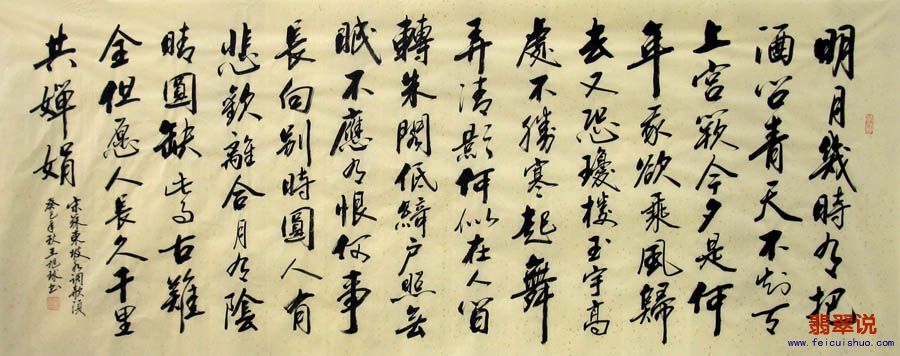 明月幾時有把
酒问青天不知天
上宫闕今夕是何
年我欲乘風歸
去又恐瓊楼玉宇高
處不勝寒起舞
弄清影何似在人间
轉朱閣低綺户照無
眠不應有恨何事
長向别時圓人有
悲歡離合月有陰
晴圓缺此事古難
全但愿人長久千里
共嬋娟
宋蘇東坡水调歌頭
癸巳年秋王书
翡翠说
www.feicuishuo.com